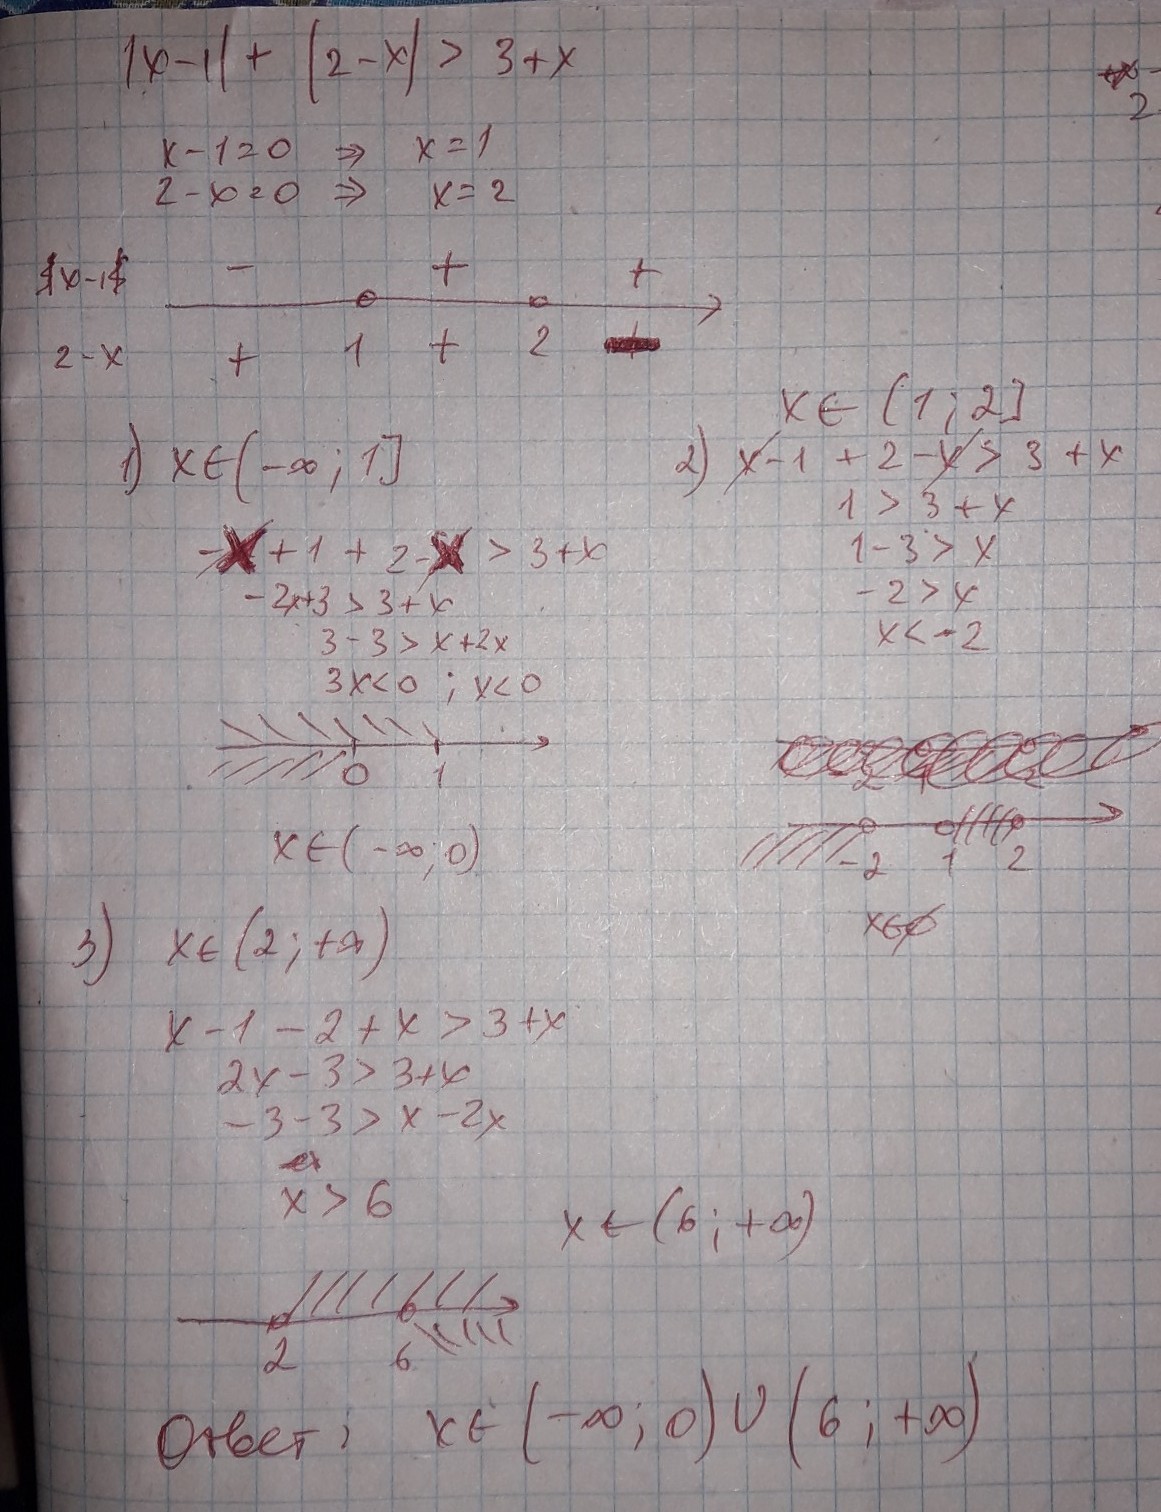 |x-1| + |2-x| > 3+x
x-1=0 ⇒ x=1
2-x=0 ⇒ x=2
x-1 - + +
2-x + 1 + 2 -
1) x∈(-∞; 1]
-x+1 + 2-x > 3+x
-2x+3 > 3+x
3-3 > x+2x
3x<0 ; x<0
0 1
x∈(-∞; 0)
x∈(1; 2]
2) x-1 + 2-x > 3+x
1 > 3+x
1-3 > x
-2 > x
x < -2
-2 1 2
x∈∅
3) x∈(2; +∞)
x-1-2+x > 3+x
2x-3 > 3+x
-3-3 > x-2x
x > 6
x∈(6; +∞)
2 6
Ответ: x∈(-∞; 0)∪(6; +∞)